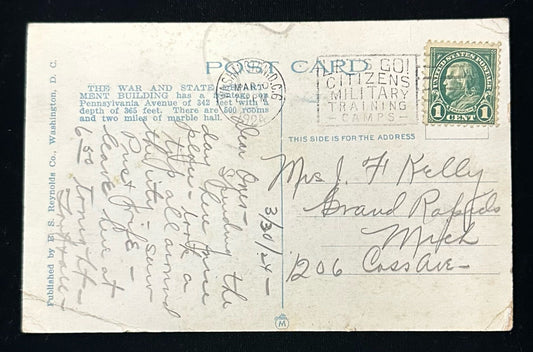 POST CARD
THE WAR AND STATE
MENT BUILDING has a frontage on
Pennsylvania Avenue of 342 feet with a
depth of 565 feet. There are 500 rooms
and two miles of marble hall.
Published by B. S. Reynolds Co., Washington, D. C.
WASHINGTON, D.C. 6
MAR 30
GO!
CITIZENS
MILITARY
TRAINING
CAMPS
UNITED STATES POSTAGE
1 1
CENT
THIS SIDE IS FOR THE ADDRESS
3/30/24 -
Dear Ones -
Spending the
day here
took a
trip all around
the city - saw
leave here at
6 50 tonight -
Mrs J F Kelly
Grand Rapids
Mich
1206 Cass Ave -
M